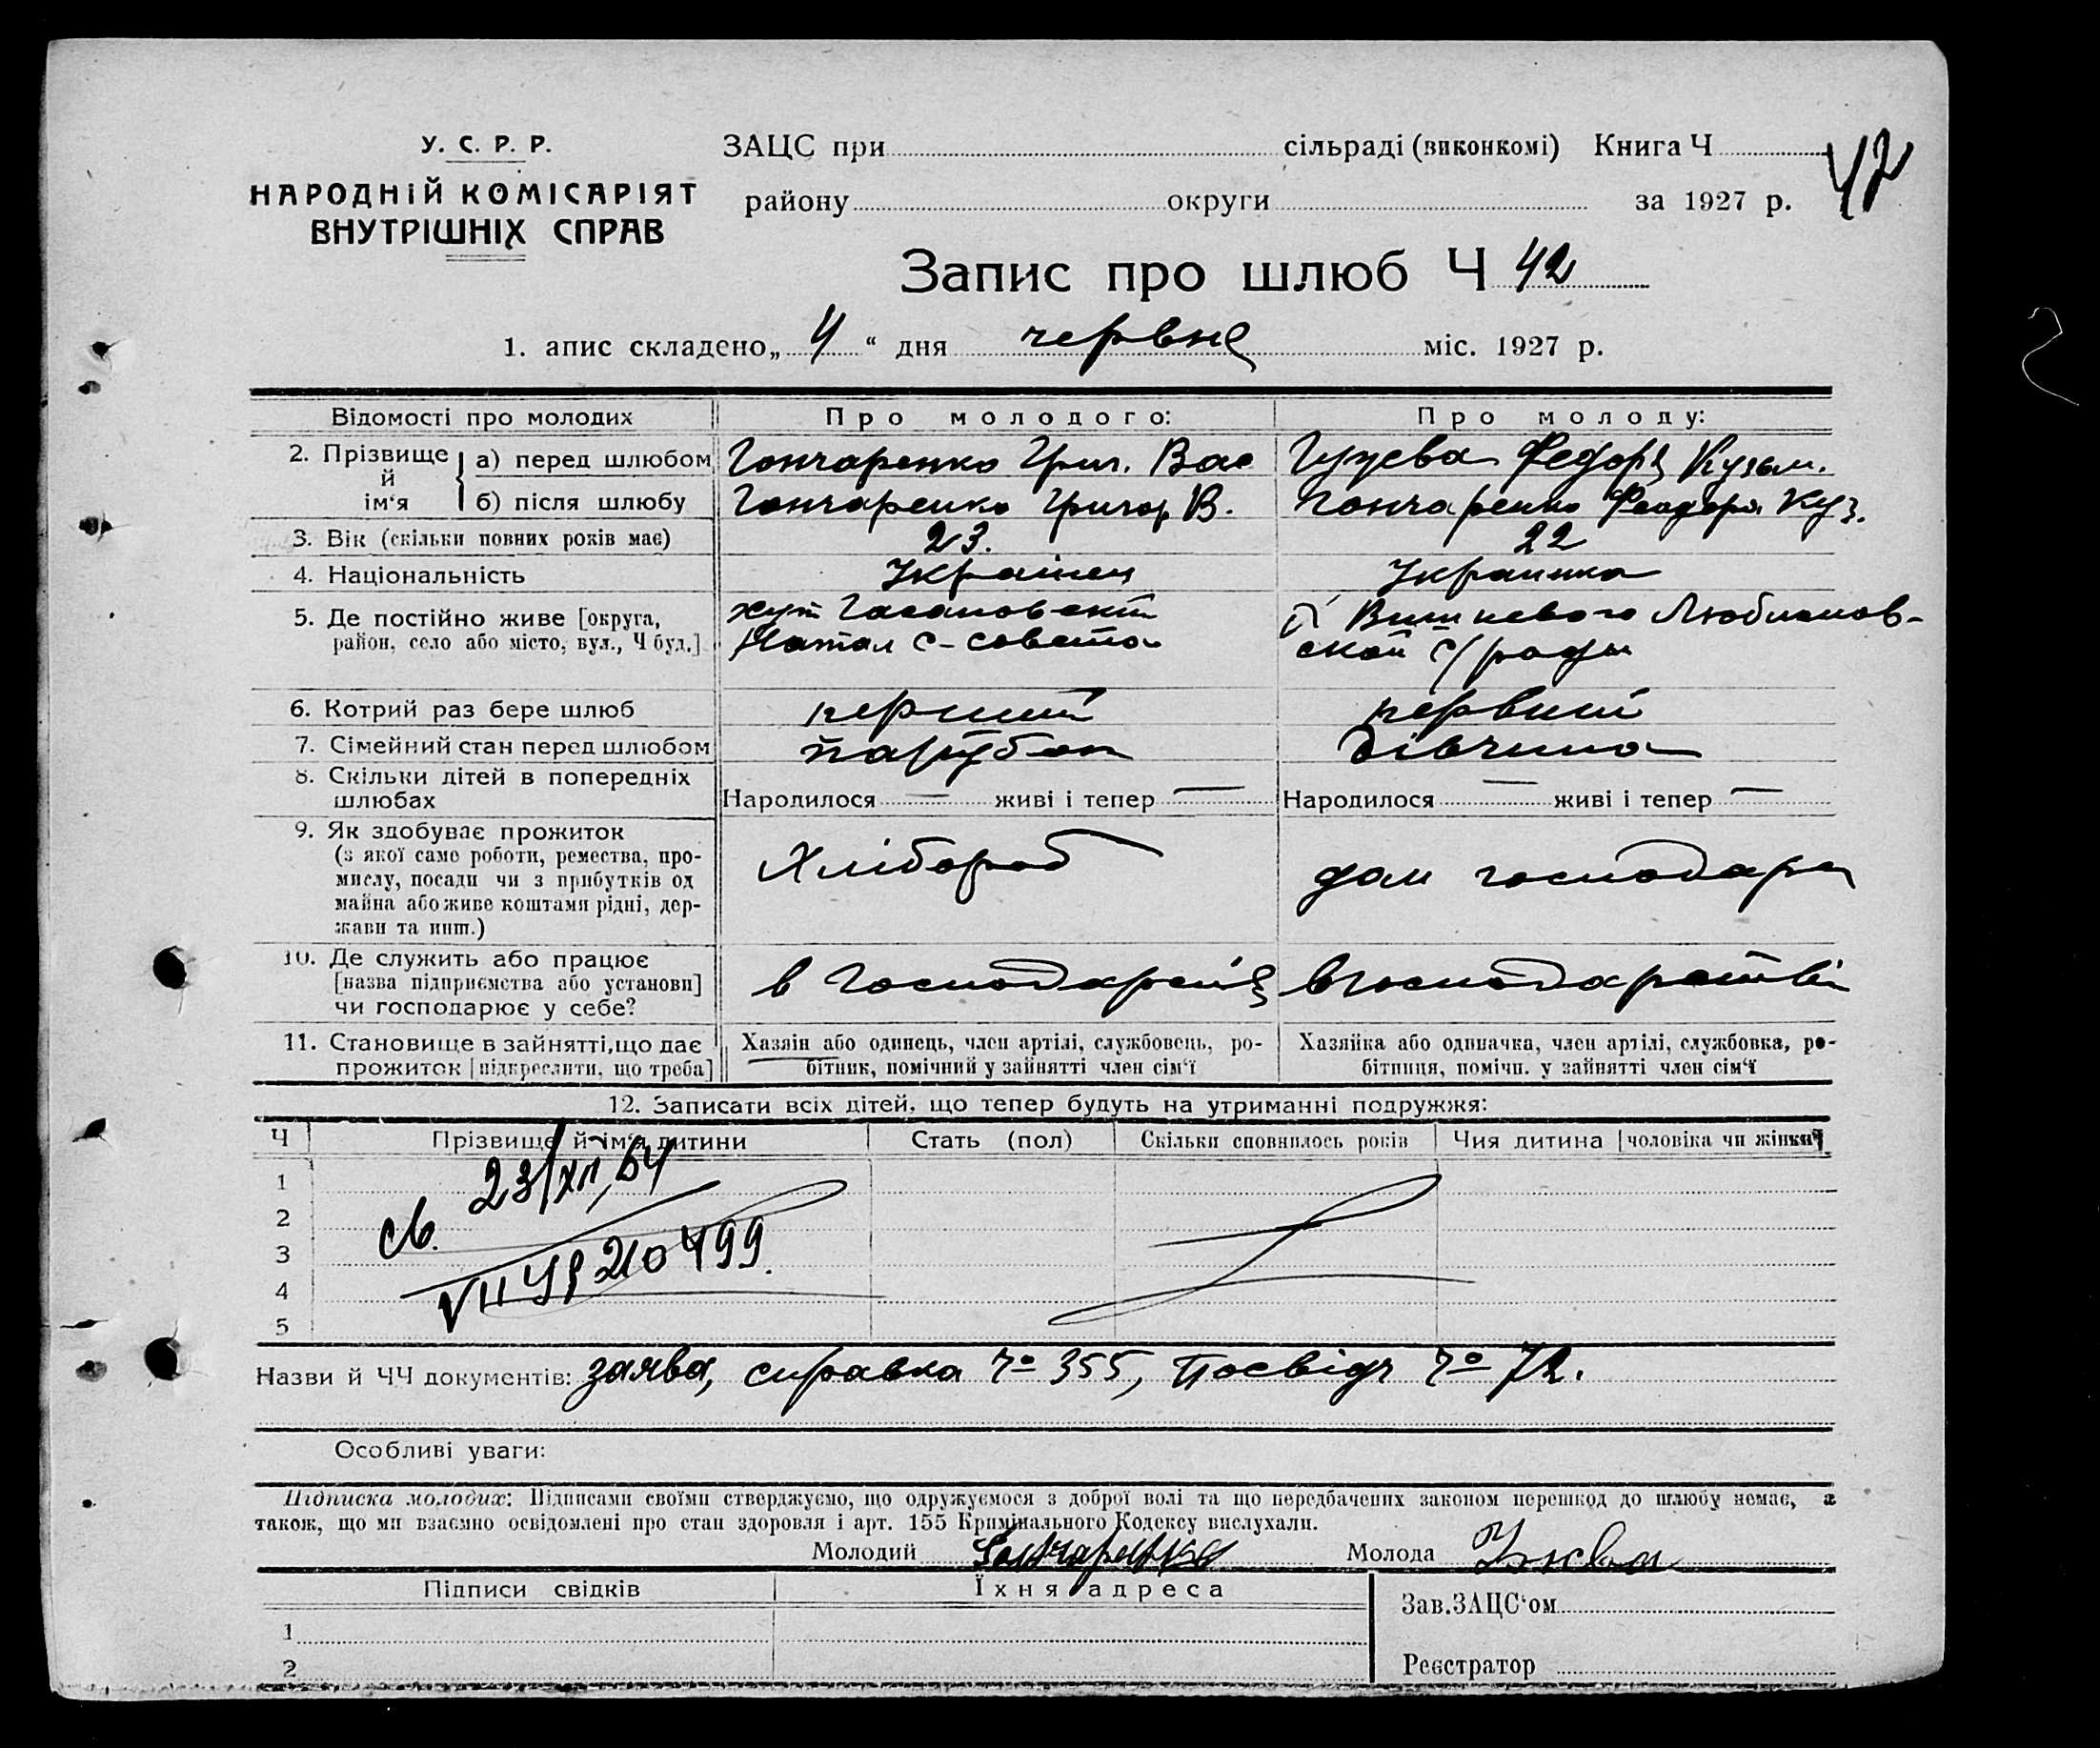 42
У. С. Р. Р.
НАРОДНІЙ КОМІСАРІЯТ
ВНУТРІШНІХ СПРАВ
ЗАЦС при сільраді (виконкомі) Книга Ч
району округи за 1927 р.
Запис про шлюб Ч 42
1. апис складено „ 4 “ дня червня міс. 1927 р.
Відомості про молодих Про молодого: Про молоду:
2. Прізвище й ім‘я а) перед шлюбом Гончаренко Григ. Вас Гужева Федоря Кузьм.
б) після шлюбу Гончаренко Григор В. Гончаренко Феодоря Куз.
3. Вік (скільки повних років має) 23. 22
4. Національність Украінец Украинка
5. Де постійно живе [округа, хут
район, село або місто, вул., Ч буд.] Натал С-совета
Вишневого Любимов-
ской С/рады
6. Котрий раз бере шлюб перший первий
7. Сімейний стан перед шлюбом парубок дівчина
8. Скільки дітей в попередніх
шлюбах Народилося — живі і тепер — Народилося — живі і тепер —
9. Як здобуває прожиток
(з якої само роботи, ремества, про-
мислу, посади чи з прибутків од
майна або живе коштами рідні, дер-
жави та инш.)
Хлібороб дом господар
10. Де служить або працює
[назва підприємства або установи]
чи господарює у себе?
в господарстві в господарстві
11. Становище в зайнятті, що дає
прожиток [підкреслити, що треба]
Хазяїн або одинець, член артілі, службовець, ро-
бітник, помічний у зайнятті член сім‘ї
Хазяйка або одиначка, член артілі, службовка, ро-
бітниця, помічн. у зайнятті член сім‘ї
12. Записати всіх дітей, що тепер будуть на утриманні подружжя:
Ч Прізвище й ім‘я дитини Стать (пол) Скільки сповнилось років Чия дитина [чоловіка чи жінки]
1
2
3
4
5
23/XII 54
св.
210499.
Назви й ЧЧ документів: заява, справка № 355, посвідч № 72.
Особливі уваги:
Підписка молодих: Підписами своїми стверджуємо, що одружуємося з доброї волі та що передбачених законом перешкод до шлюбу немає, а
також, що ми взаємно освідомлені про стан здоровля і арт. 155 Кримінального Кодексу вислухали.
Молодий Гончаренко Молода
Підписи свідків Їхня адреса
1
2
Зав. ЗАЦС‘ом
Реєстратор